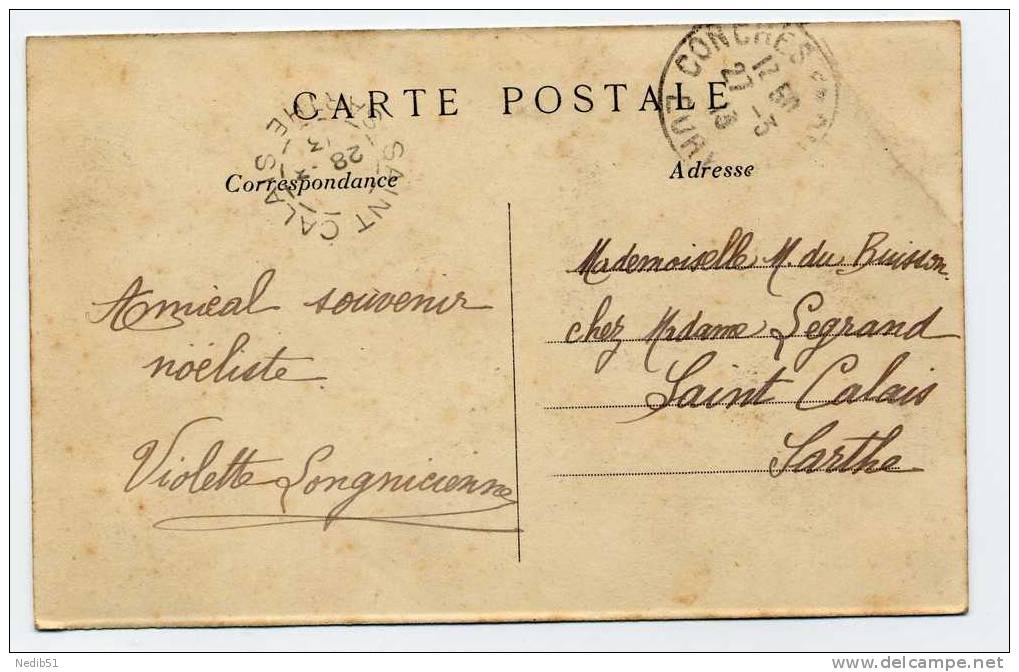 CARTE POSTALE
Correspondance
Adresse
CONCHES
17 50
27 -3
13
SAINT CALAIS
SARTHE
28 -3
13
Amical souvenir
noéliste.
Violette Longnicienne
Mademoiselle M. du Buisson
chez Madame Legrand
Saint Calais
Sarthe
Nedib51
delcampe.net